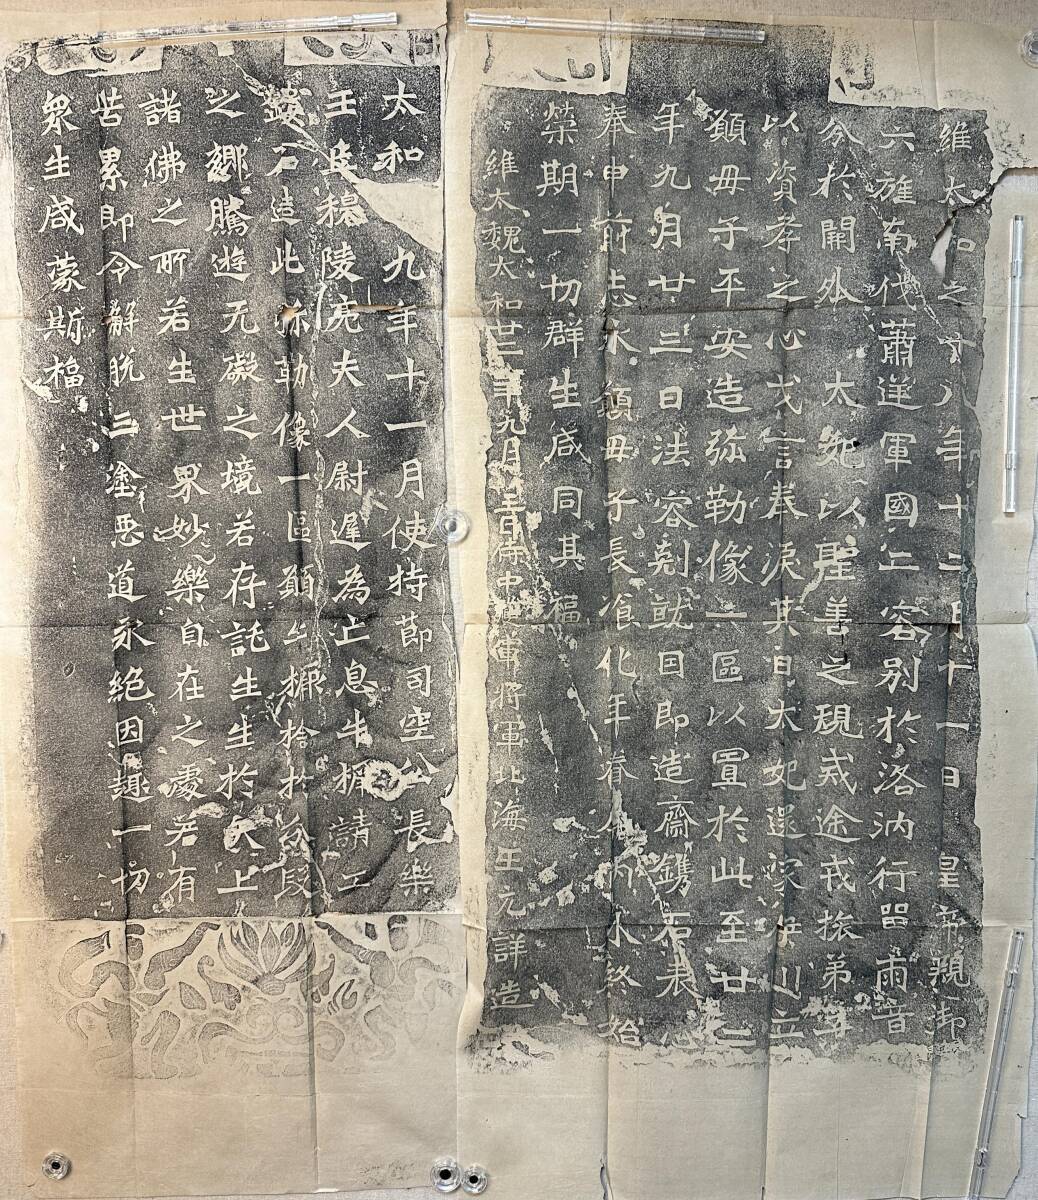 維太和之十八年十二月十一日皇帝親御
六旌南伐蕭逆軍國二容別於洛汭行留兩音
分於闕外太妃以聖善之規戒途戎旅弟子
以資孝之心戈言奉淚其日太妃還家伊川立
願母子平安造弥勒像一區以置於此至廿二
年九月廿三日法容剋就因即造齋鐫石表心
奉申前志永願母子長飡化年眷內終始
榮期一切群生咸同其福
維太魏太和廿二年九月廿三日侍中護軍將軍北海王元詳造
太和九年十一月使持節司空公長樂
王丘穆陵亮夫人尉遲為亡息牛橛請工
鏤石造此弥勒像一區願牛橛捨於分段
之鄉騰遊无礙之境若存託生生於天上
諸佛之所若生世界妙樂自在之處若有
苦累即令解脫三塗惡道永絕因趣一切
眾生咸蒙斯福